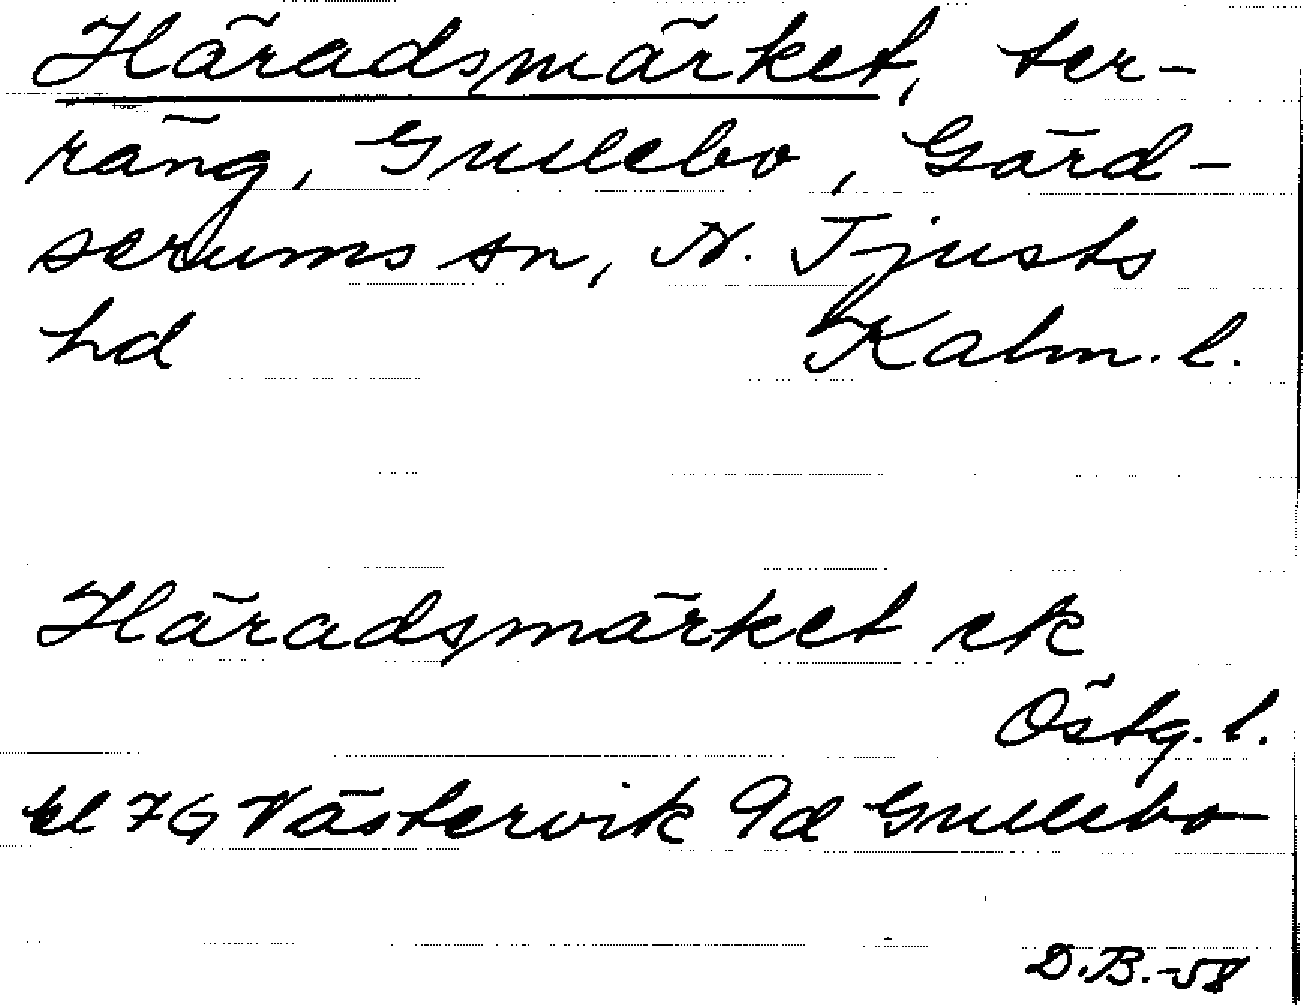 Häradsmärket, ter-
räng, Gullebo, Gärd-
serums sn, N. Tjusts
hd Kalm. l.
Häradsmärket ek
Östg. l.
bl 7G Västervik 9d Gullebo
D.B.-58